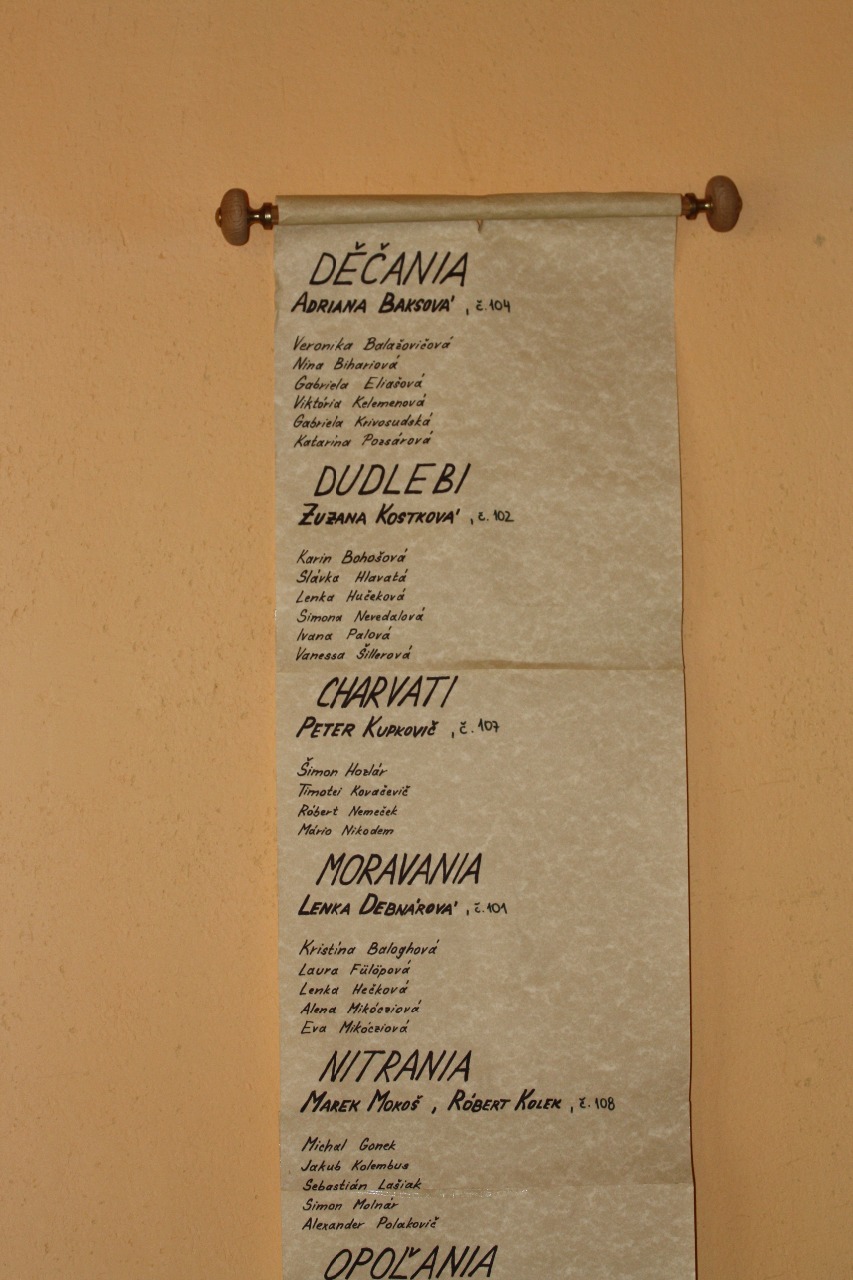 DĚČANIA
ADRIANA BAKSOVÁ, č. 104
Veronika Balažovičová
Nina Bihariová
Gabriela Eliašová
Viktória Kelemenová
Gabriela Krivosudská
Katarína Pozsárová
DUDLEBI
ZUZANA KOSTKOVÁ, č. 102
Karin Bohošová
Slávka Hlavatá
Lenka Hučeková
Simona Nevedalová
Ivana Palová
Vanessa Šillerová
CHARVATI
PETER KUPKOVIČ, č. 107
Šimon Hozlár
Timotei Kovačevič
Róbert Nemeček
Mário Nikodem
MORAVANIA
LENKA DEBNÁROVÁ, č. 101
Kristína Baloghová
Laura Fülöpová
Lenka Hečková
Alena Mikócziová
Eva Mikócziová
NITRANIA
MAREK MOKOŠ, RÓBERT KOLEK, č. 108
Michal Gonek
Jakub Kolembus
Sebastián Lašiak
Simon Molnár
Alexander Polakovič
OPOĽANIA